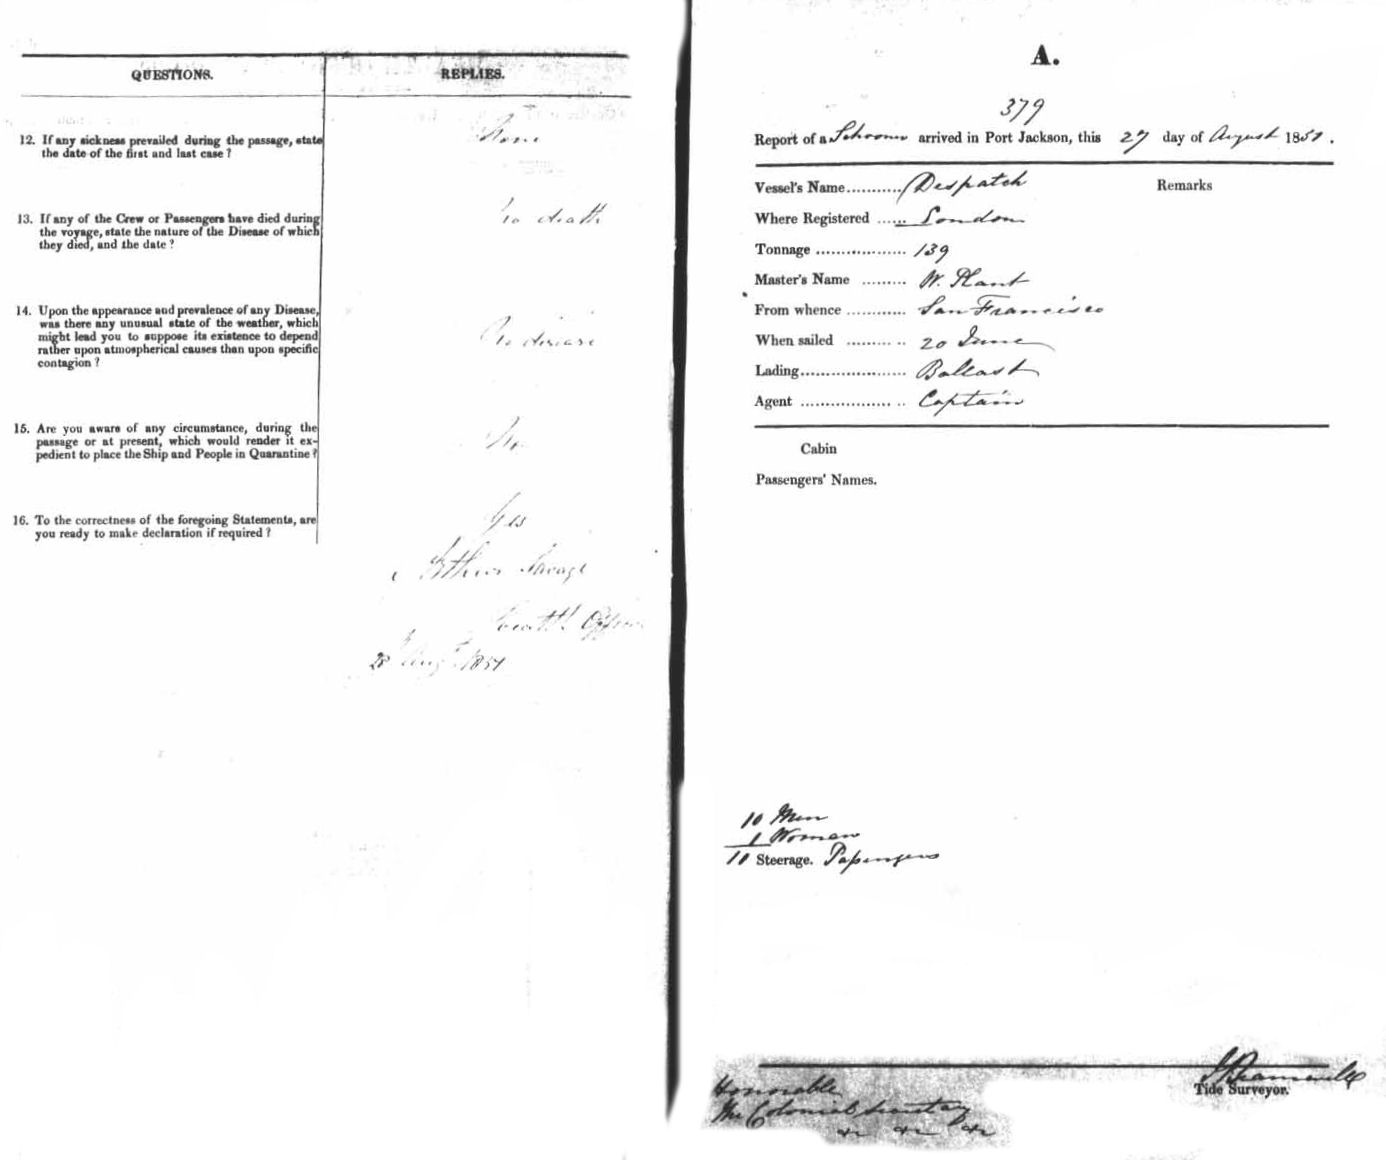 QUESTIONS.
REPLIES.
12. If any sickness prevailed during the passage, state
the date of the first and last case ?
None
13. If any of the Crew or Passengers have died during
the voyage, state the nature of the Disease of which
they died, and the date ?
No death
14. Upon the appearance and prevalence of any Disease,
was there any unusual state of the weather, which
might lead you to suppose its existence to depend
rather upon atmospherical causes than upon specific
contagion ?
No disease
15. Are you aware of any circumstance, during the
passage or at present, which would render it ex-
pedient to place the Ship and People in Quarantine ?
No
16. To the correctness of the foregoing Statements, are
you ready to make declaration if required ?
Yes
Arthur Savage
Health Officer
28 Augt 1851
A.
379
Report of a Schooner arrived in Port Jackson, this 27 day of August 1851.
Vessel's Name........... Despatch
Remarks
Where Registered ...... London
Tonnage .................. 139
Master's Name ......... W. Plant
From whence ............ San Francisco
When sailed ......... .. 20 June
Lading..................... Ballast
Agent .................. .. Captain
Cabin
Passengers' Names.
10 Men
1 Woman
Steerage. Passengers
Tide Surveyor.
Honorable
The Colonial Secretary
&c &c &c